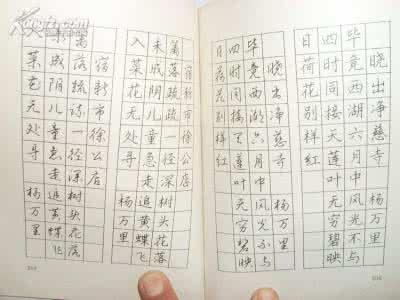 晓出净慈寺 杨万里
毕竟西湖六月中风光不与
四时同接天莲叶无穷碧映
日荷花别样红
晓出净慈寺 杨万里
毕竟西湖六月中风光不与
四时同接天莲叶无穷碧映
日荷花别样红
宿新市徐公店
篱落疏疏一径深树头花落
未成阴儿童急走追黄蝶飞
入菜花无处寻 杨万里
宿新市徐公店
篱落疏疏一径深树头花落
未成阴儿童急走追黄蝶飞
菜花无处寻 杨万里